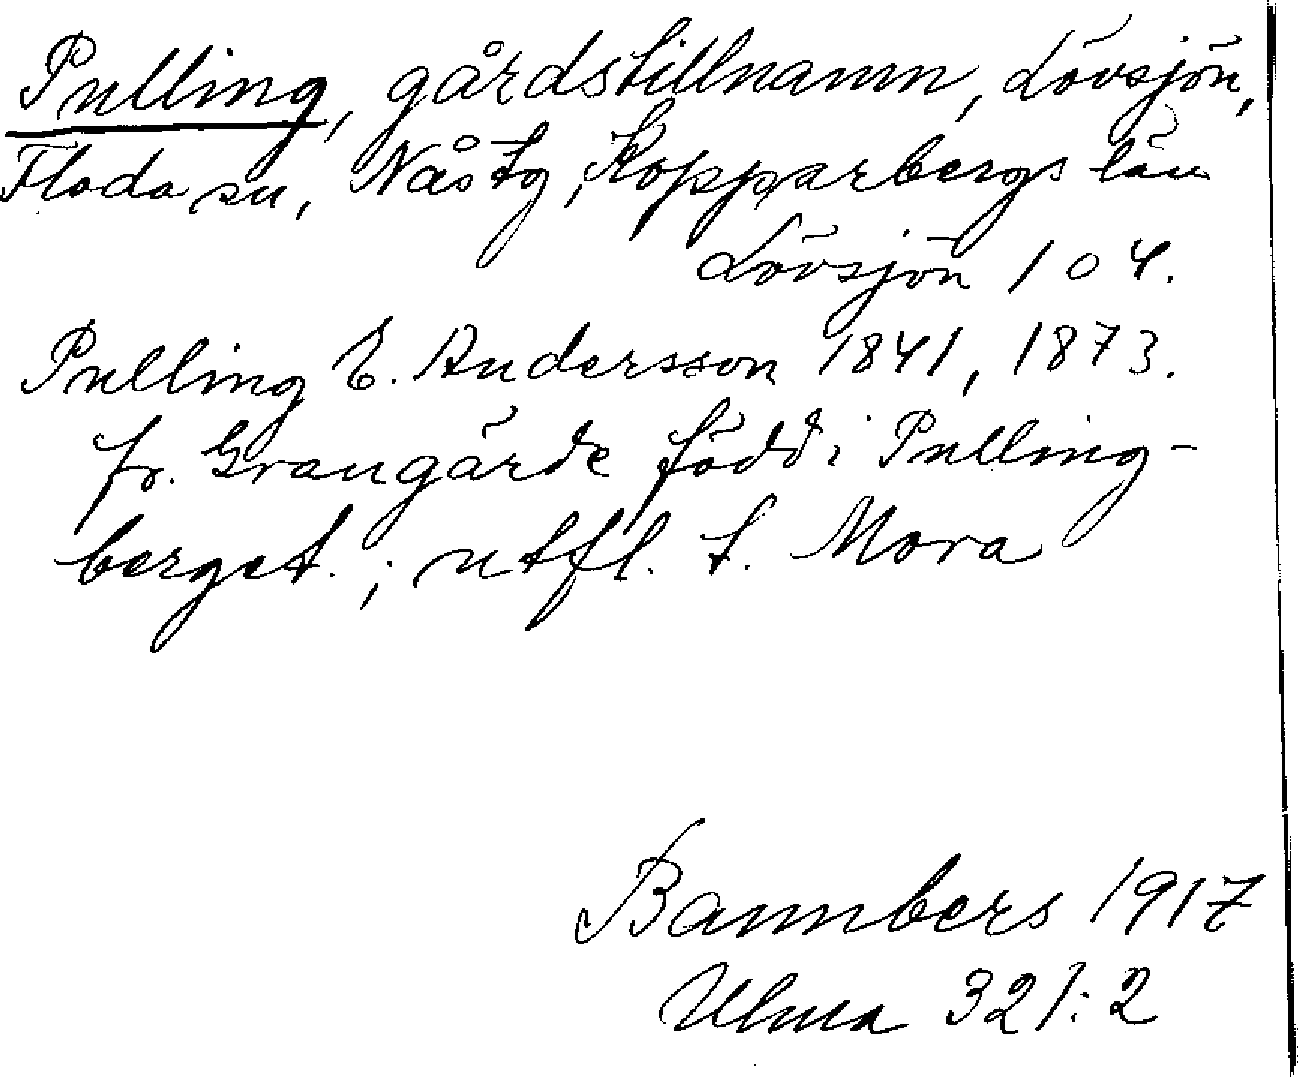 Pulling, gårdstillnamn, Lövsjön,
Floda sn, Nås tg, Kopparbergs län
Lövsjön 104.
Pulling E. Andersson 1841, 1873.
fr. Grangärde född i Pulling-
berget.; utfl. t. Mora
Bannbers 1917
Ulma 321:2